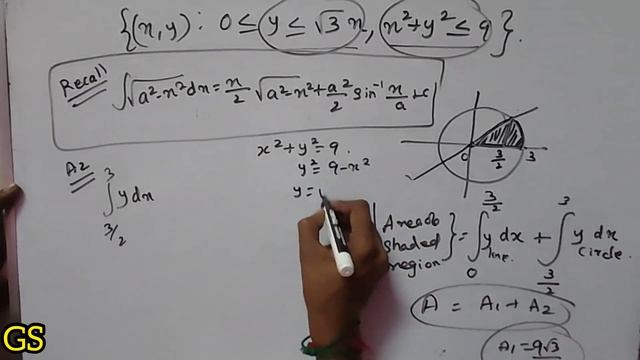 {(x, y) : 0 ≤ y ≤ √3 x, x² + y² ≤ 9}.
Recall ∫√a²-x² dx = x/2 √a²-x² + a²/2 sin⁻¹ x/a + c
x² + y² = 9.
y² = 9-x²
y =
A2
∫ 3 3/2 y dx
0 3/2 3
Area of shaded region } = ∫ 3/2 0 y dx line. + ∫ 3 3/2 y dx circle.
A = A1 + A2
A1 = 9√3
GS